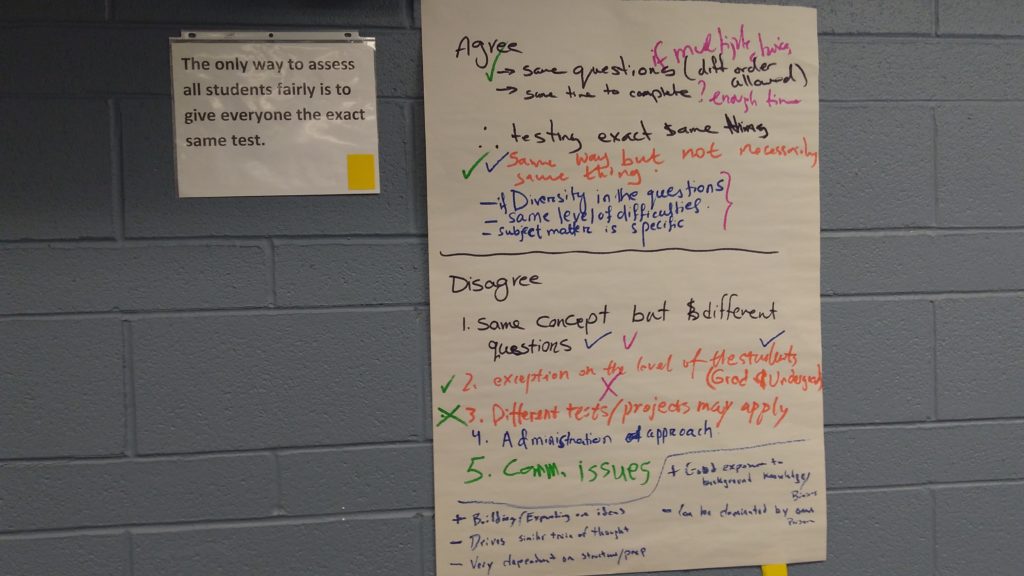 The only way to assess
all students fairly is to
give everyone the exact
same test.
Agree
if multiple, twice
→ same questions (diff order
allowed)
→ same time to complete ? enough time
∴ testing exact same thing
same way but not necessarily
same thing.
- if Diversity in the questions
- same level of difficulties.
- subject matter is specific
Disagree
1. same concept but different
questions
2. exception on the level of the students
(Grad & Undergrad)
3. Different tests/projects may apply
4. Administration approach.
5. Comm. issues
+ Good exposure to
background knowledge/
Biases
+ Building/Expanding on ideas
- Can be dominated by one
Person
- Drives similar train of thought
- Very dependent on structure/prep